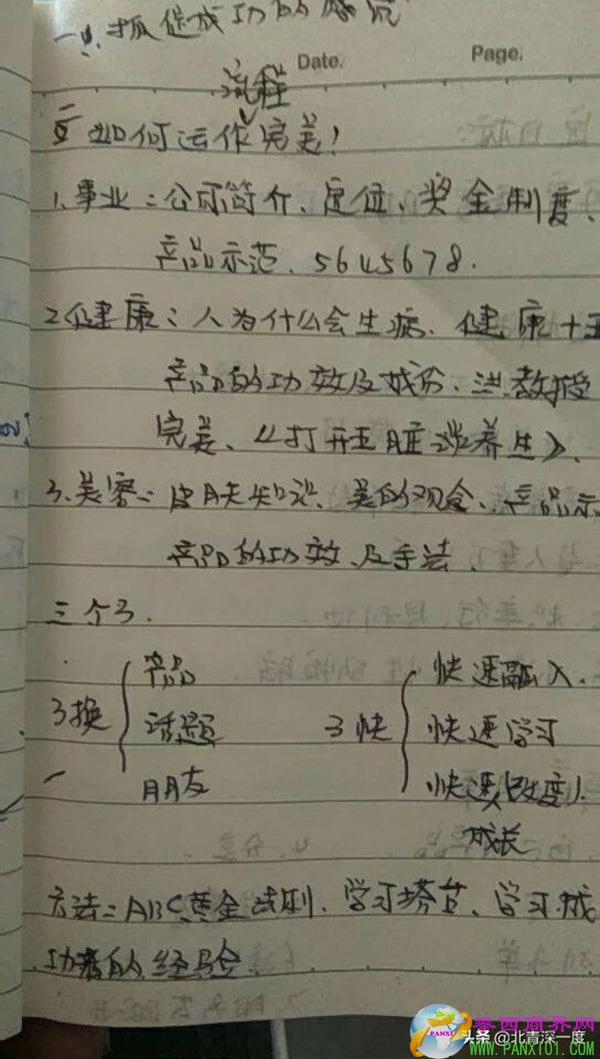 抓住成功的感觉
Date. Page.
流程
如何运作完美!
1.事业:公司简介、定位、奖金制度、
产品示范、5645678.
2健康:人为什么会生病、健康十五
产品的功效及成份、洪教授
完美、《打开五脏谈养生》、
3.美容:皮肤知识、美的观念、产品示
产品的功效、及手法、
三个3.
3换 产品 3快 快速融入.
话题 快速学习
朋友 快速改变
成长
方法:ABC黄金法则、学习搭台、学习成
功者的经验
头条@北青深一度
PANX101
WWW.PANX101.COM